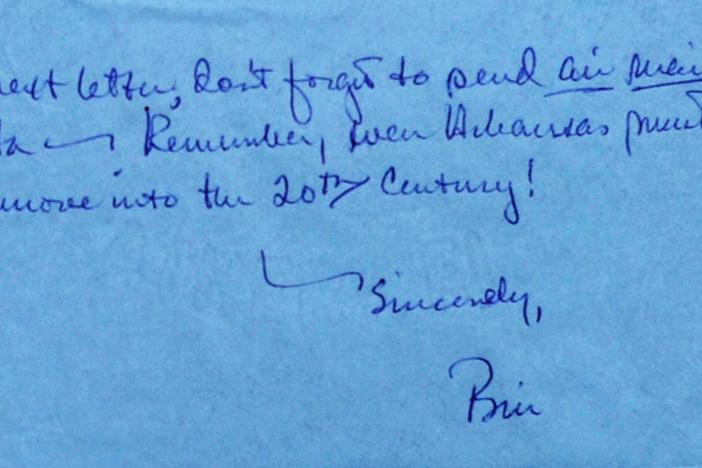 next letter, don't forget to send air mail
Remember, even Arkansas must
move into the 20th Century!
Sincerely,
Bill